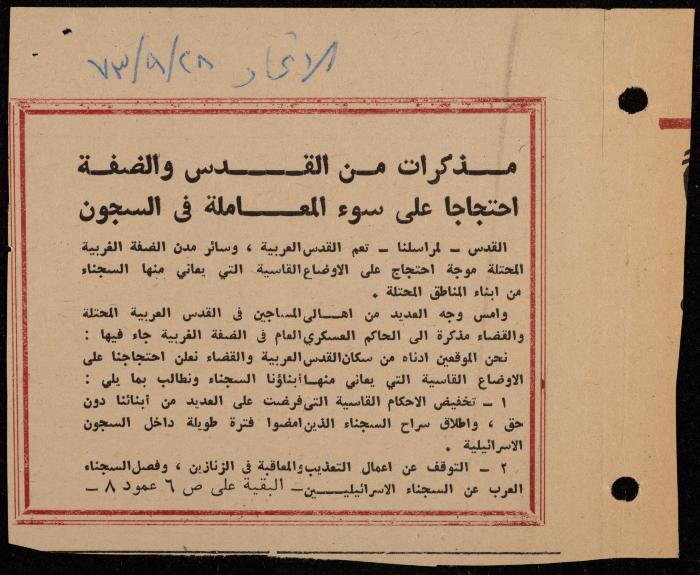 الاتحاد ٧٣/٩/٢٨
مذكرات من القدس والضفة
احتجاجا على سوء المعاملة في السجون
القدس ـ لمراسلنا ـ تعم القدس العربية ، وسائر مدن الضفة الغربية
المحتلة موجة احتجاج على الاوضاع القاسية التي يعاني منها السجناء
من ابناء المناطق المحتلة .
وامس وجه العديد من اهالى المساجين في القدس العربية المحتلة
والقضاء مذكرة الى الحاكم العسكري العام في الضفة الغربية جاء فيها :
نحن الموقعين ادناه من سكان القدس العربية والقضاء نعلن احتجاجنا على
الاوضاع القاسية التي يعاني منها أبناؤنا السجناء ونطالب بما يلي :
١ ـ تخفيض الاحكام القاسية التى فرضت على العديد من أبنائنا دون
حق ، واطلاق سراح السجناء الذين امضوا فترة طويلة داخل السجون
الاسرائيلية .
٢ ـ التوقف عن اعمال التعذيب والمعاقبة في الزنازين ، وفصل السجناء
العرب عن السجناء الاسرائيليين ـ البقية على ص ٦ عمود ٨ ـ